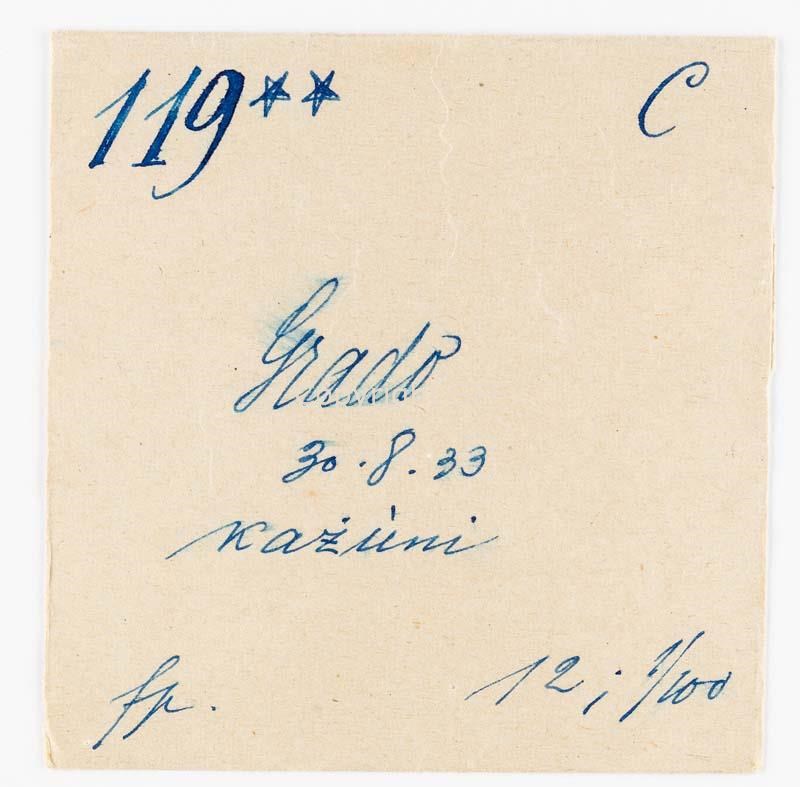 119** C
Grado
30.8.33
každni
fp.
12 ; 1/100